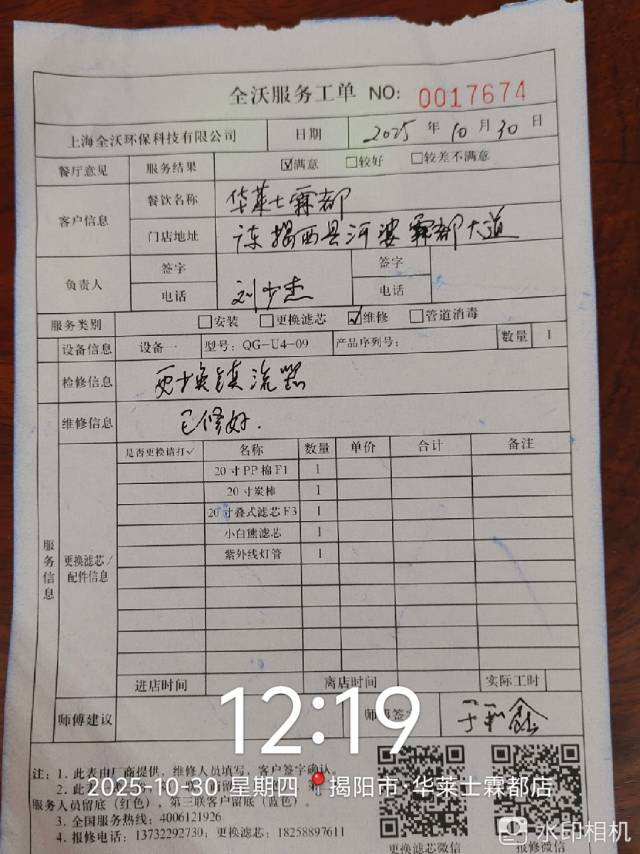 全沃服务工单 NO: 0017674
上海全沃环保科技有限公司 日期 2025 年 10 月 30 日
餐厅意见 服务结果 ☑满意 □较好 □较差不满意
客户信息 餐饮名称 华莱士霖都
门店地址 揭西县河婆霖都大道
负责人 签字 签字
电话 刘少杰 电话
服务类别 □安装 □更换滤芯 ☑维修 □管道消毒
设备信息 设备一 型号: QG-U4-09 产品序列号: 数量 1
检修信息 更换镇流器
维修信息 已修好.
服务信息
更换滤芯/配件信息
是否更换请打✓ 名称 数量 单价 合计 备注
20寸PP棉F1 1
20寸炭棒 1
20寸叠式滤芯F3 1
小白熊滤芯 1
紫外线灯管 1
进店时间 离店时间 实际工时
师傅建议 师傅签字
12:19
2025-10-30 星期四 揭阳市·华莱士霖都店
注: 1. 此表由厂商提供, 维修人员填写, 客户签字确认
2. 此
服务人员留底 (红色), 第三联客户留底 (蓝色).
3. 全国服务热线: 4006121926
4. 报修电话: 13732292730; 更换滤芯: 18258897611
更换滤芯微信 报修微信
水印相机